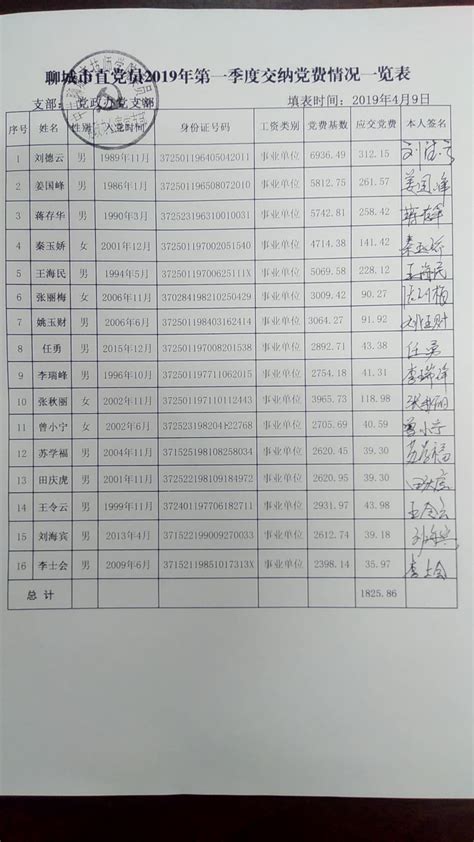 聊城市直党员2019年第一季度交纳党费情况一览表
支部: 党政办党支部 填表时间: 2019年4月9日
序号 姓名 性别 入党时间 身份证号码 工资类别 党费基数 应交党费 本人签名
1 刘德云 男 1989年11月 372501196405042011 事业单位 6936.49 312.15 刘德云
2 姜国峰 男 1986年1月 372501196508072010 事业单位 5812.75 261.57 姜国峰
3 蒋存华 男 1990年3月 372523196310010031 事业单位 5742.81 258.42 蒋存华
4 秦玉娇 女 2001年12月 372501197002051540 事业单位 4714.38 141.42 秦玉娇
5 王海民 男 1994年5月 37250119700625111X 事业单位 5069.58 228.12 王海民
6 张丽梅 女 2006年11月 370284198210250429 事业单位 3009.42 90.27 张丽梅
7 姚玉财 男 2006年6月 371502198403162414 事业单位 3064.27 91.92
8 任勇 男 2015年12月 372501197008201538 事业单位 2892.71 43.38 任勇
9 李瑞峰 男 1996年10月 372501197711062015 事业单位 2754.18 41.31 李瑞峰
10 张秋丽 女 2002年11月 372501197110112443 事业单位 3965.73 118.98 张秋丽
11 曾小宁 女 2002年6月 事业单位 2705.69 40.59 曾小宁
12 苏学福 男 2004年11月 371525198108258034 事业单位 2620.45 39.30 苏学福
13 田庆虎 男 2001年11月 372501198009042030 事业单位 2620.95 39.30 田庆虎
14 王令云 男 1999年11月 372401197706182711 事业单位 2931.97 43.98 王令云
15 刘海宾 男 2013年4月 371522199009270033 事业单位 2612.74 39.18 刘海宾
16 李士会 男 2009年6月 37152119851017313X 事业单位 2398.14 35.97 李士会
总 计 1825.86